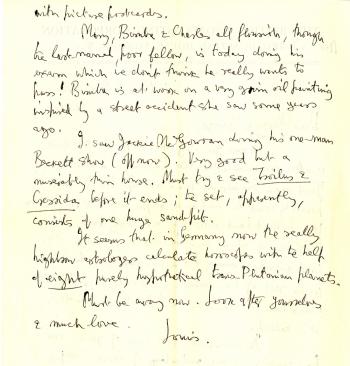 with picture postcards.
Mary, Bimba & Charles all flourish, though
the last-named poor fellow, is today doing his
exam which we don't think he really wants to
pass! Bimba is at work on a very grim oil painting
inspired by a street accident she saw some years
ago.
I saw Jackie McGowran doing his one-man
Beckett show (off now). Very good but a
miserably thin house. Must try & see Troilus &
Cressida before it ends; the set, apparently,
consists of one huge sand-pit.
It seems that in Germany now the really
highbrow astrologers calculate horoscopes with the help
of eight purely hypothetical trans-Plutonian planets.
Must be away now. Look after yourselves
& much love.
Louis.